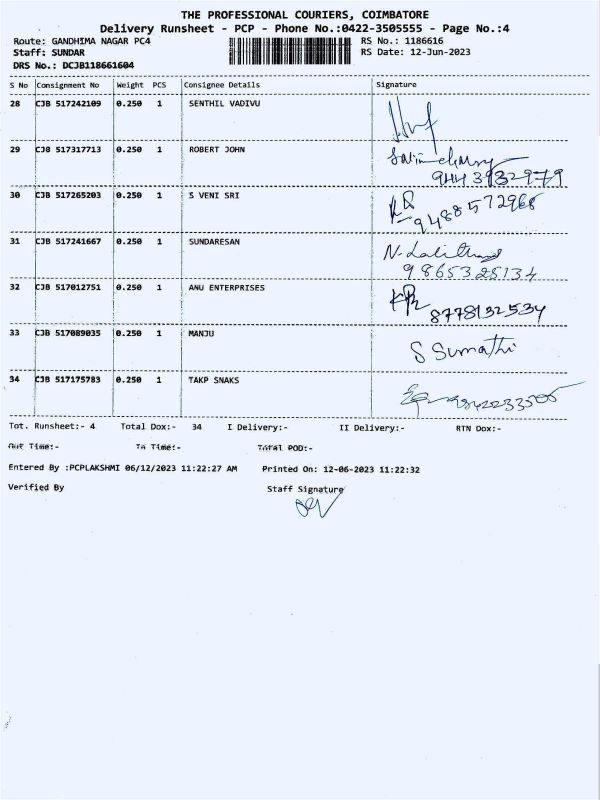 THE PROFESSIONAL COURIERS, COIMBATORE
Delivery Runsheet - PCP - Phone No.:0422-3505555 - Page No.:4
Route: GANDHIMA NAGAR PC4 RS No.: 1186616
Staff: SUNDAR RS Date: 12-Jun-2023
DRS No.: DCJB118661604
S No Consignment No Weight PCS Consignee Details Signature
28 CJB 517242109 0.250 1 SENTHIL VADIVU
29 CJB 517317713 0.250 1 ROBERT JOHN
9443932979
30 CJB 517265203 0.250 1 S VENI SRI
9488572968
31 CJB 517241667 0.250 1 SUNDARESAN
9865325134
32 CJB 517012751 0.250 1 ANU ENTERPRISES
8778132534
33 CJB 517089035 0.250 1 MANJU S Sumathi
34 CJB 517175783 0.250 1 TAKP SNAKS
Tot. Runsheet:- 4 Total Dox:- 34 I Delivery:- II Delivery:- RTN Dox:-
Out Time:- In Time:- Total POD:-
Entered By :PCPLAKSHMI 06/12/2023 11:22:27 AM Printed On: 12-06-2023 11:22:32
Verified By Staff Signature